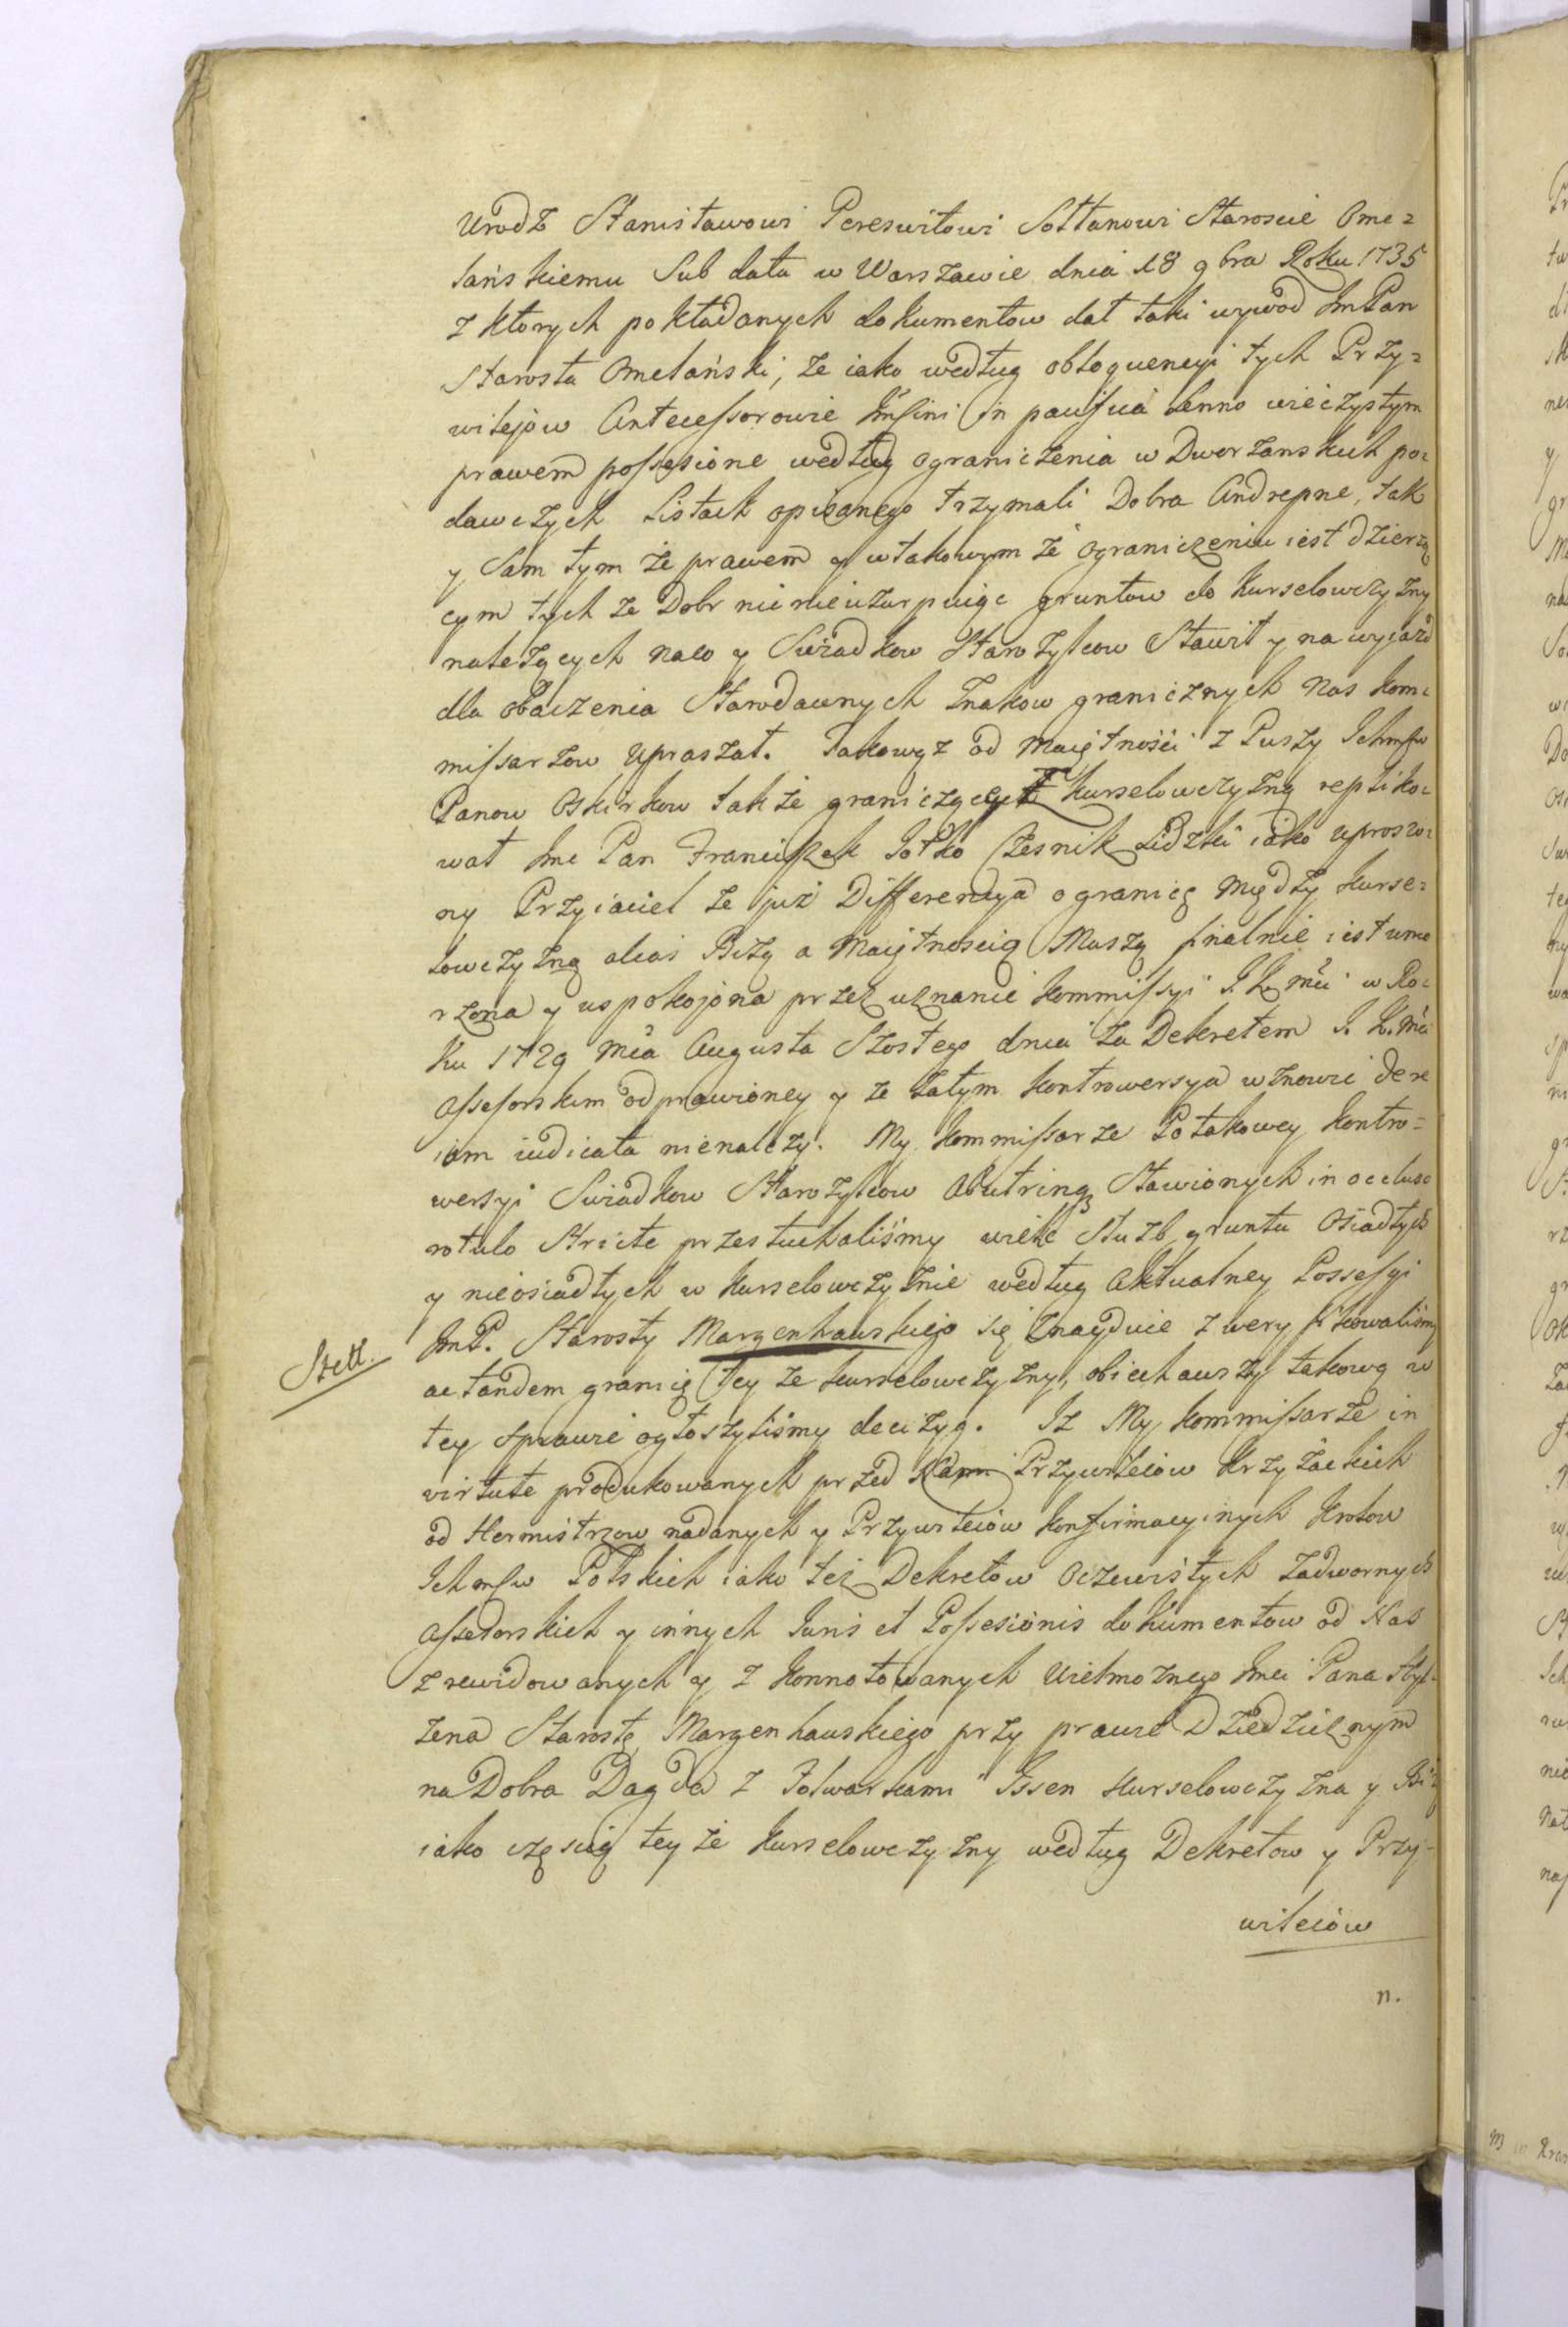 Urodz Stanisławowi Pereswitowi Sołtanowi Staroscie Ome=
lańskiemu Sub data w Warszawie dnia 18 9bra Roku 1735
z ktorych pokładanych dokumentow dał taki wywod ImPan
Starosta Omelański, że iako według obloquencyi tych Przy=
wilejow Antecessorowie Imsini in pacifica Lenno wieczystym
prawem possessione według ograniczenia w Dworzanskich po=
dawczych Listach opisanego trzymali Dobra Andrepne, tak
y Sam tym że prawem y w takowym że ograniczeniu iest dzierzą
cym tych że Dobr nic nieuzurpuiąc gruntow do Kurselowczyzny
należących naco y Swiadkow Starożytcow Stawił y na wyjazd
dla obaczenia Starodawnych Znakow granicznych Nas Kom=
missarzow upraszał. Takowyz od Maiętności z Puszy Ichmśw
Panow Oskirkow także graniczącey z Kurselowczyzną repliko=
wał Imc Pan Franciszek Jotko Czesnik Lidzki iako uproszo=
ny Przyiaciel że już Differencya o granicę między Kurse=
lowczyzną alias Bizą a Maiętnoscią Muszą finalnie iest umo
rzona y uspokojona przez uznanie Kommissyi J. K. mci w Ro=
ku 1729 mca Augusta Szostego dnia za Dekretem J. K. Mci
Assesorskim odprawioney y że zatym kontrowersya w znowie de re
iam iudicata nienależy. My Kommissarze Po takowey kontro=
wersyi Swiadkow Starożytcow Abutrinq Stawionych in occluso
rotulo Stricte przesłuchaliśmy wiele Służb gruntu Osiadłych
y nieosiadłych w Kurselowczyznie według Aktualney Possessyi
ImP. Starosty Marzenhauskiego się Znayduie zweryfikowaliśmy
ac tandem granicę tey że Kurselowczyzny, obiechawszy takową w
tey Sprawie ogłosiliśmy decizyą. Iż My Kommissarze in
virtute produkowanych przed Nami Przywileiow Krzyżackich
od Hermistrzow nadanych y Przywileiow konfirmacyinych Krolow
Ichmśw Polskich iako też Dekretow Oczewistych Zadwornych
Assesorskich y innych Juris et Possesionis dokumentow od Nas
zrewidowanych y z konnotowanych Wielmożnego Imci Pana Hyl=
zena Starostę Marzenhauskiego przy prawie Dziedzicznym
na Dobra Dagda z Folwarkami Essen Kurselowczyzna y Biz
iako częscią tey że Kurselowczyzny według Dekretow y Przy-
wileiow
n.